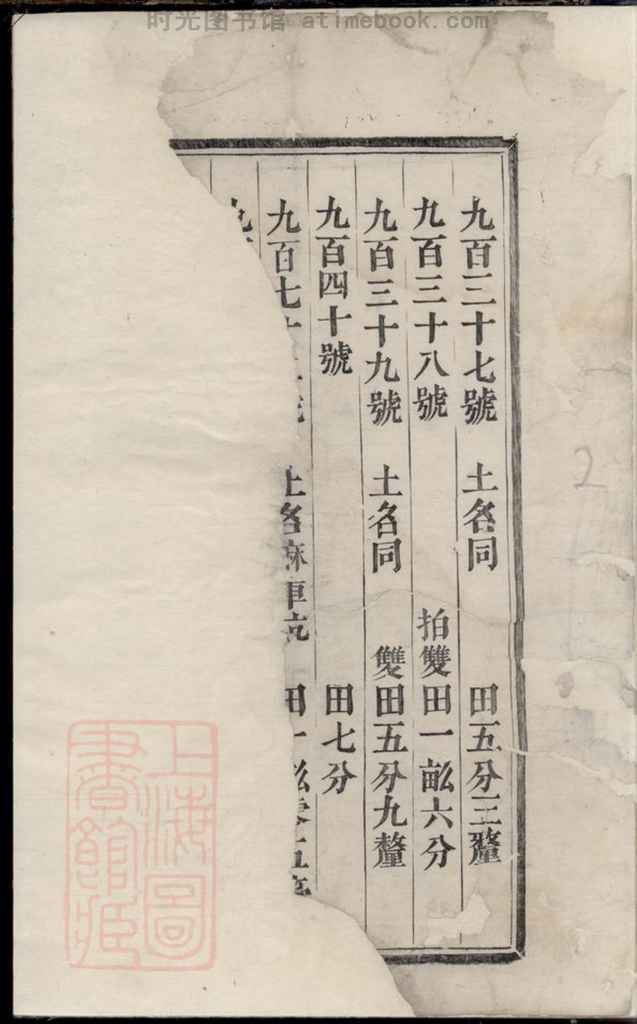 时光图书馆 atimebook.com
九百三十七號 土名同 田五分三釐
九百三十八號 拍雙田一畝六分
九百三十九號 土名同 雙田五分九釐
九百四十號 田七分
九百七十 土名麻車 田一畝零五
九百
上海圖書館藏